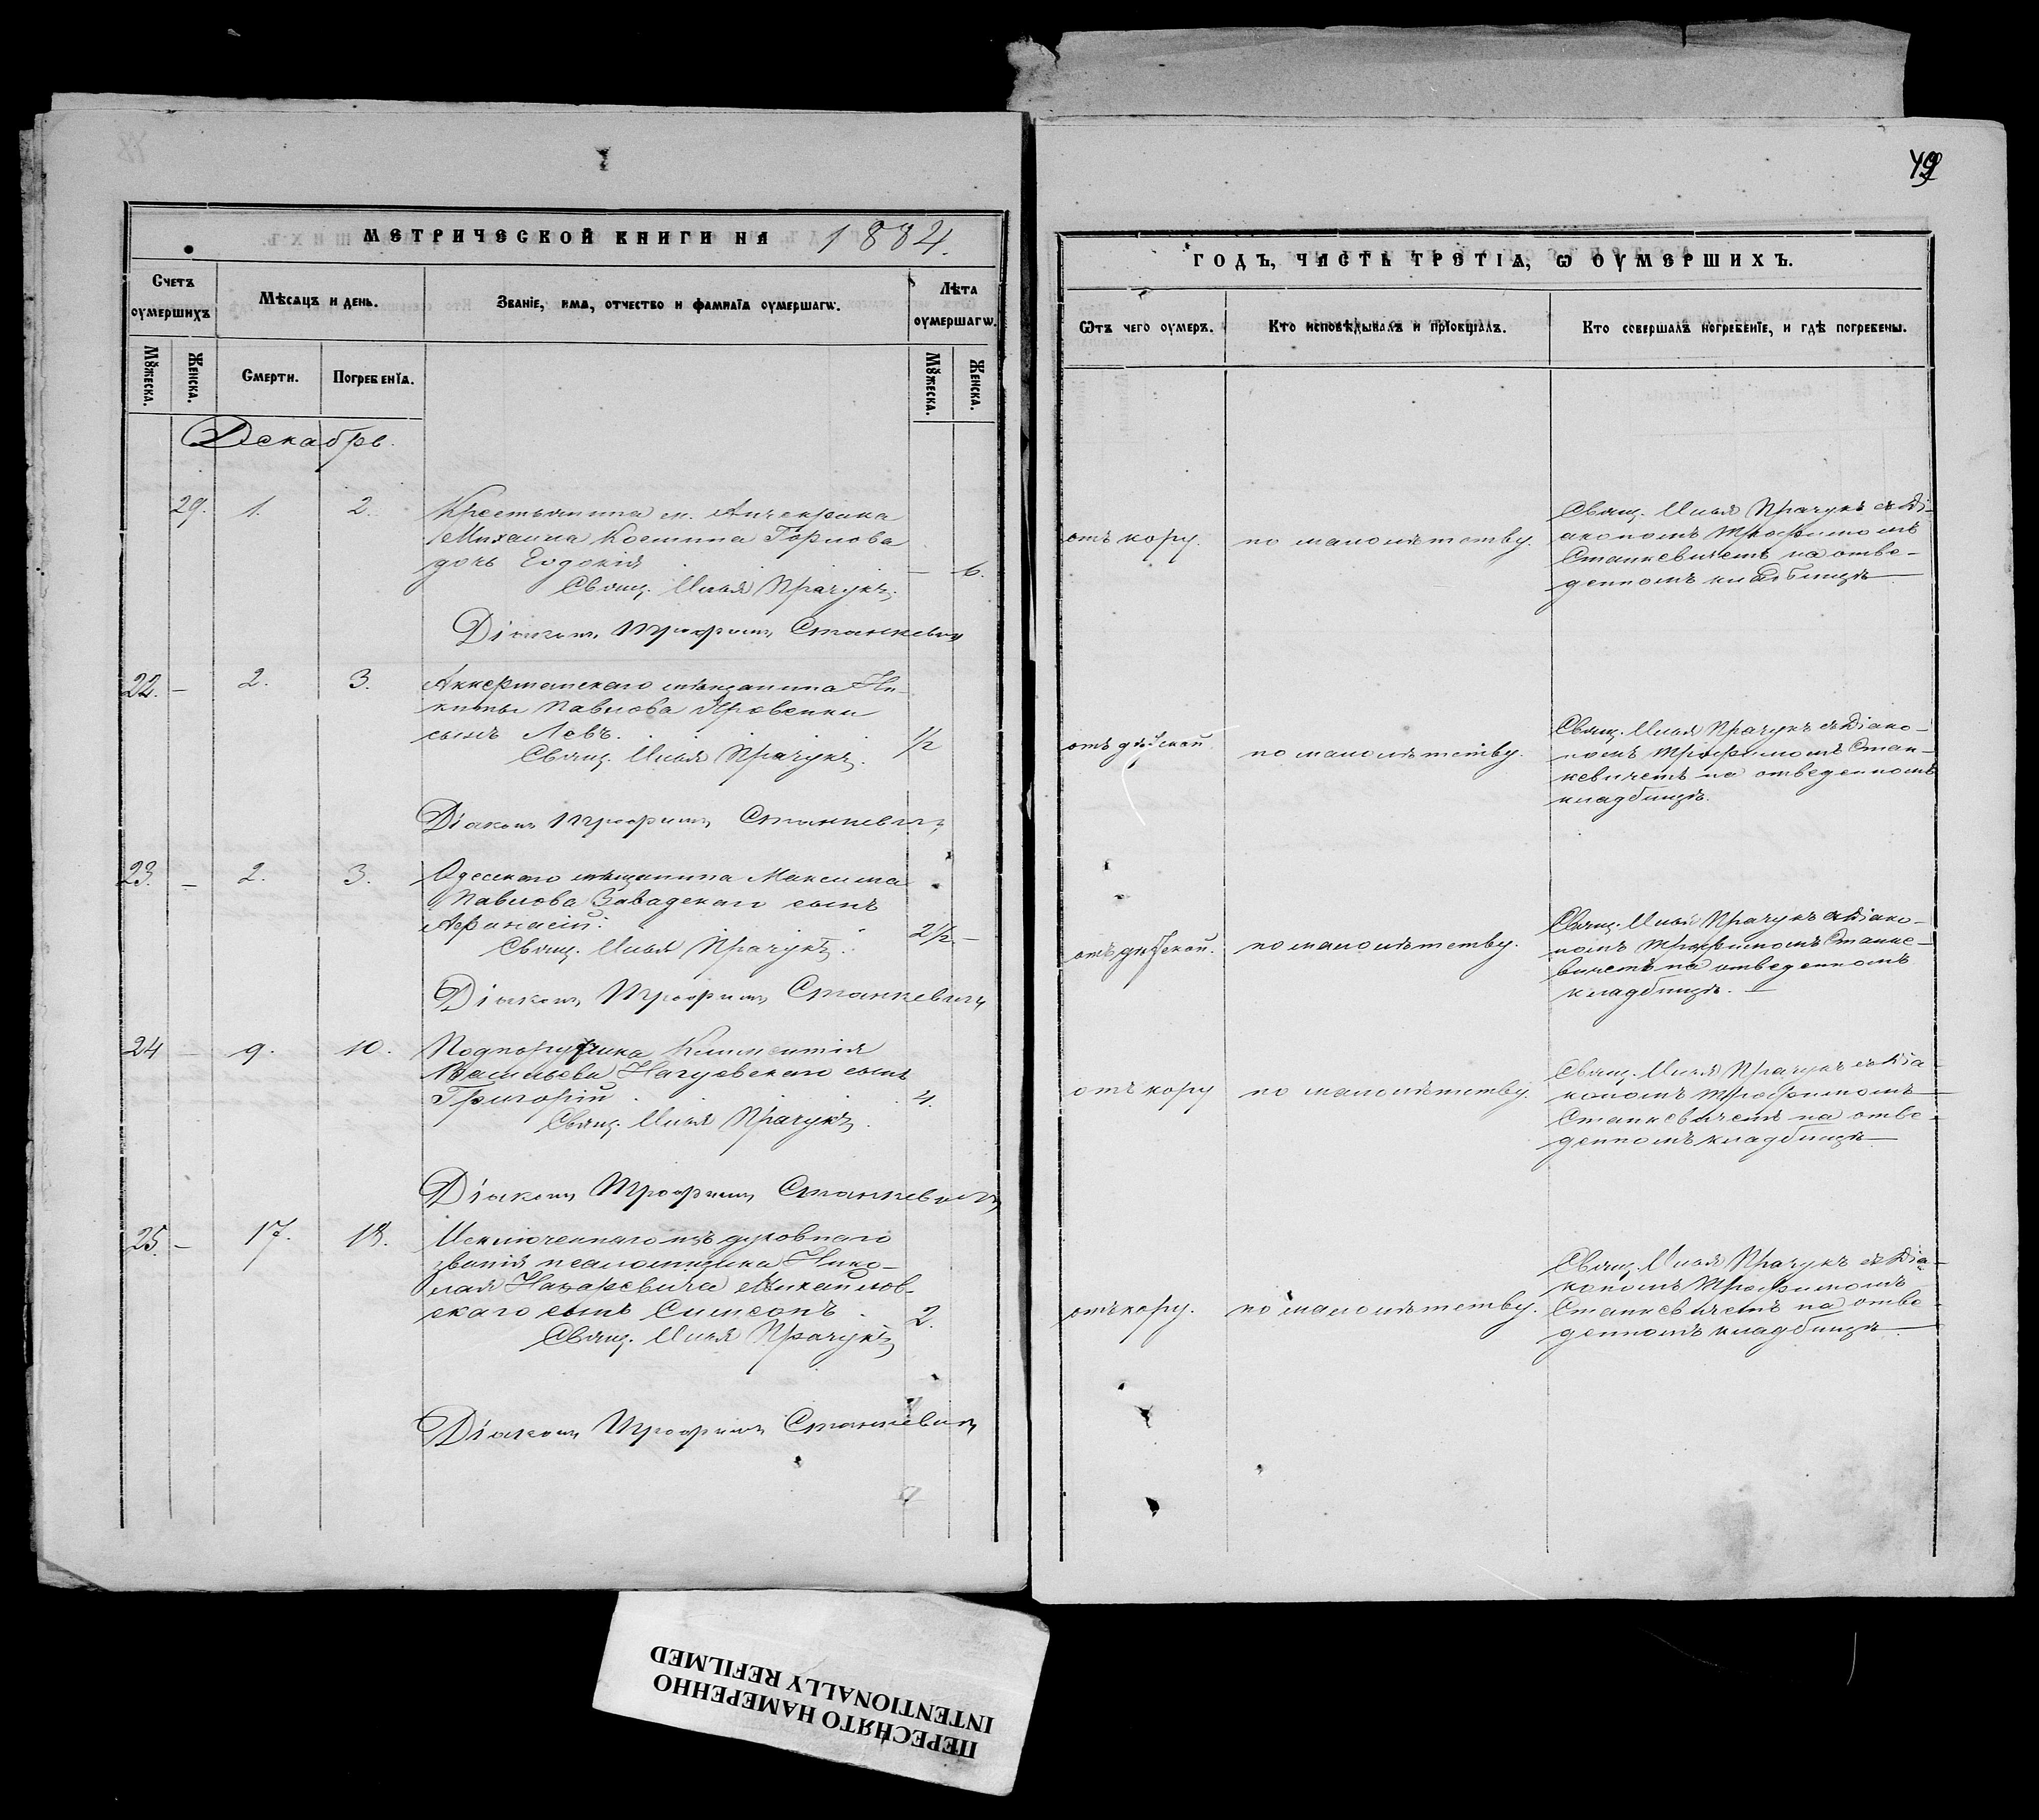 49
МЕТРИЧЕСКОЙ КНИГИ НА 1884.
ГОДЪ, ЧАСТЬ ТРЕТІѦ, Ѡ ОУМЕРШИХЪ.
Счетъ оумершихъ
Мѣсяцъ и день.
Званіе, имѧ, отчество и фамиліѧ оумершагѡ.
Лѣта оумершагѡ.
Ѿтъ чего оумеръ.
Кто исповѣдывалъ и пріобщалъ.
Кто совершалъ погребеніе, и гдѣ погребены.
Мꙋжеска.
Женска.
Смерти.
Погребеніѧ.
Мꙋжеска.
Женска.
Декабрь.
29. 1. 2.
Крестьянина м. Анчекрака
Михаила Костина Горлова
дочь Евдокія
— 6.
Свящ. Илья Прачукъ.
Діаконъ Трофимъ Станкевичъ
отъ кору.
по малолѣтству.
Свящ. Илья Прачукъ съ Ді-
акономъ Трофимомъ
Станкевичемъ на отве-
денномъ кладбищѣ
22. — 2. 3.
Аккерманскаго мѣщанина Ни-
киты Павлова
сынъ Левъ.
1/2
Свящ. Илья Прачукъ.
Діаконъ Трофимъ Станкевичъ
отъ дѣтской
по малолѣтству.
Свящ. Илья Прачукъ съ Діако-
номъ Трофимомъ Стан-
кевичемъ на отведенномъ
кладбищѣ.
23. — 2. 3.
Одесскаго мѣщанина Максима
Павлова Завадскаго сынъ
Афанасій.
2 1/2 —
Свящ. Илья Прачукъ.
Діаконъ Трофимъ Станкевичъ
отъ дѣтской.
по малолѣтству.
Свящ. Илья Прачукъ съ Діако-
номъ Трофимомъ Станке-
вичемъ на отведенномъ
кладбищѣ. —
24 — 9. 10.
Подпоручика Климентія
Васильева Нагуевскаго сынъ
Григорій
4.
Свящ. Илья Прачукъ.
Діаконъ Трофимъ Станкевичъ
отъ кору
по малолѣтству.
Свящ. Илья Прачукъ съ Діа-
кономъ Трофимомъ
Станкевичемъ на отве-
денномъ кладбищѣ
25. — 17. 18.
Исключеннаго изъ духовнаго
званія псаломщика Нико-
лая Назаревича Михайлов-
скаго сынъ Симеонъ
2.
Свящ. Илья Прачукъ
Діаконъ Трофимъ Станкевичъ
отъ кору.
по малолѣтству.
Свящ. Илья Прачукъ съ Діа-
кономъ Трофимомъ
Станкевичемъ на отве-
денномъ кладбищѣ
ПЕРЕСНЯТО НАМЕРЕННО
INTENTIONALLY REFILMED